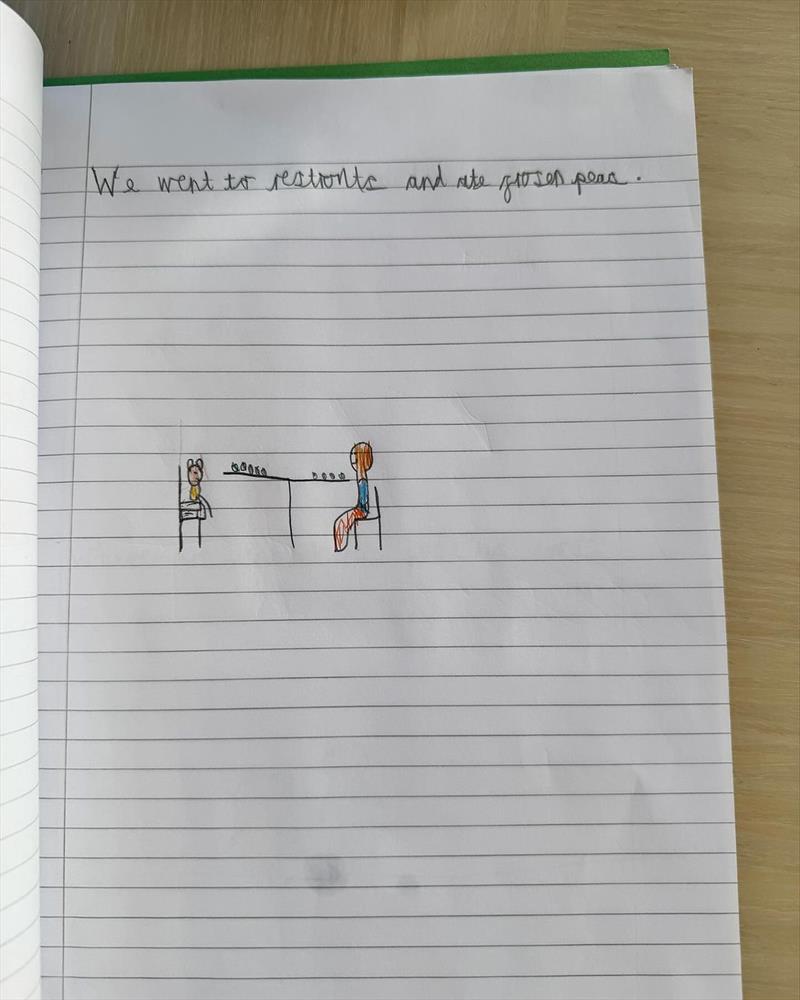 We went to restronts and ate frosen peas.